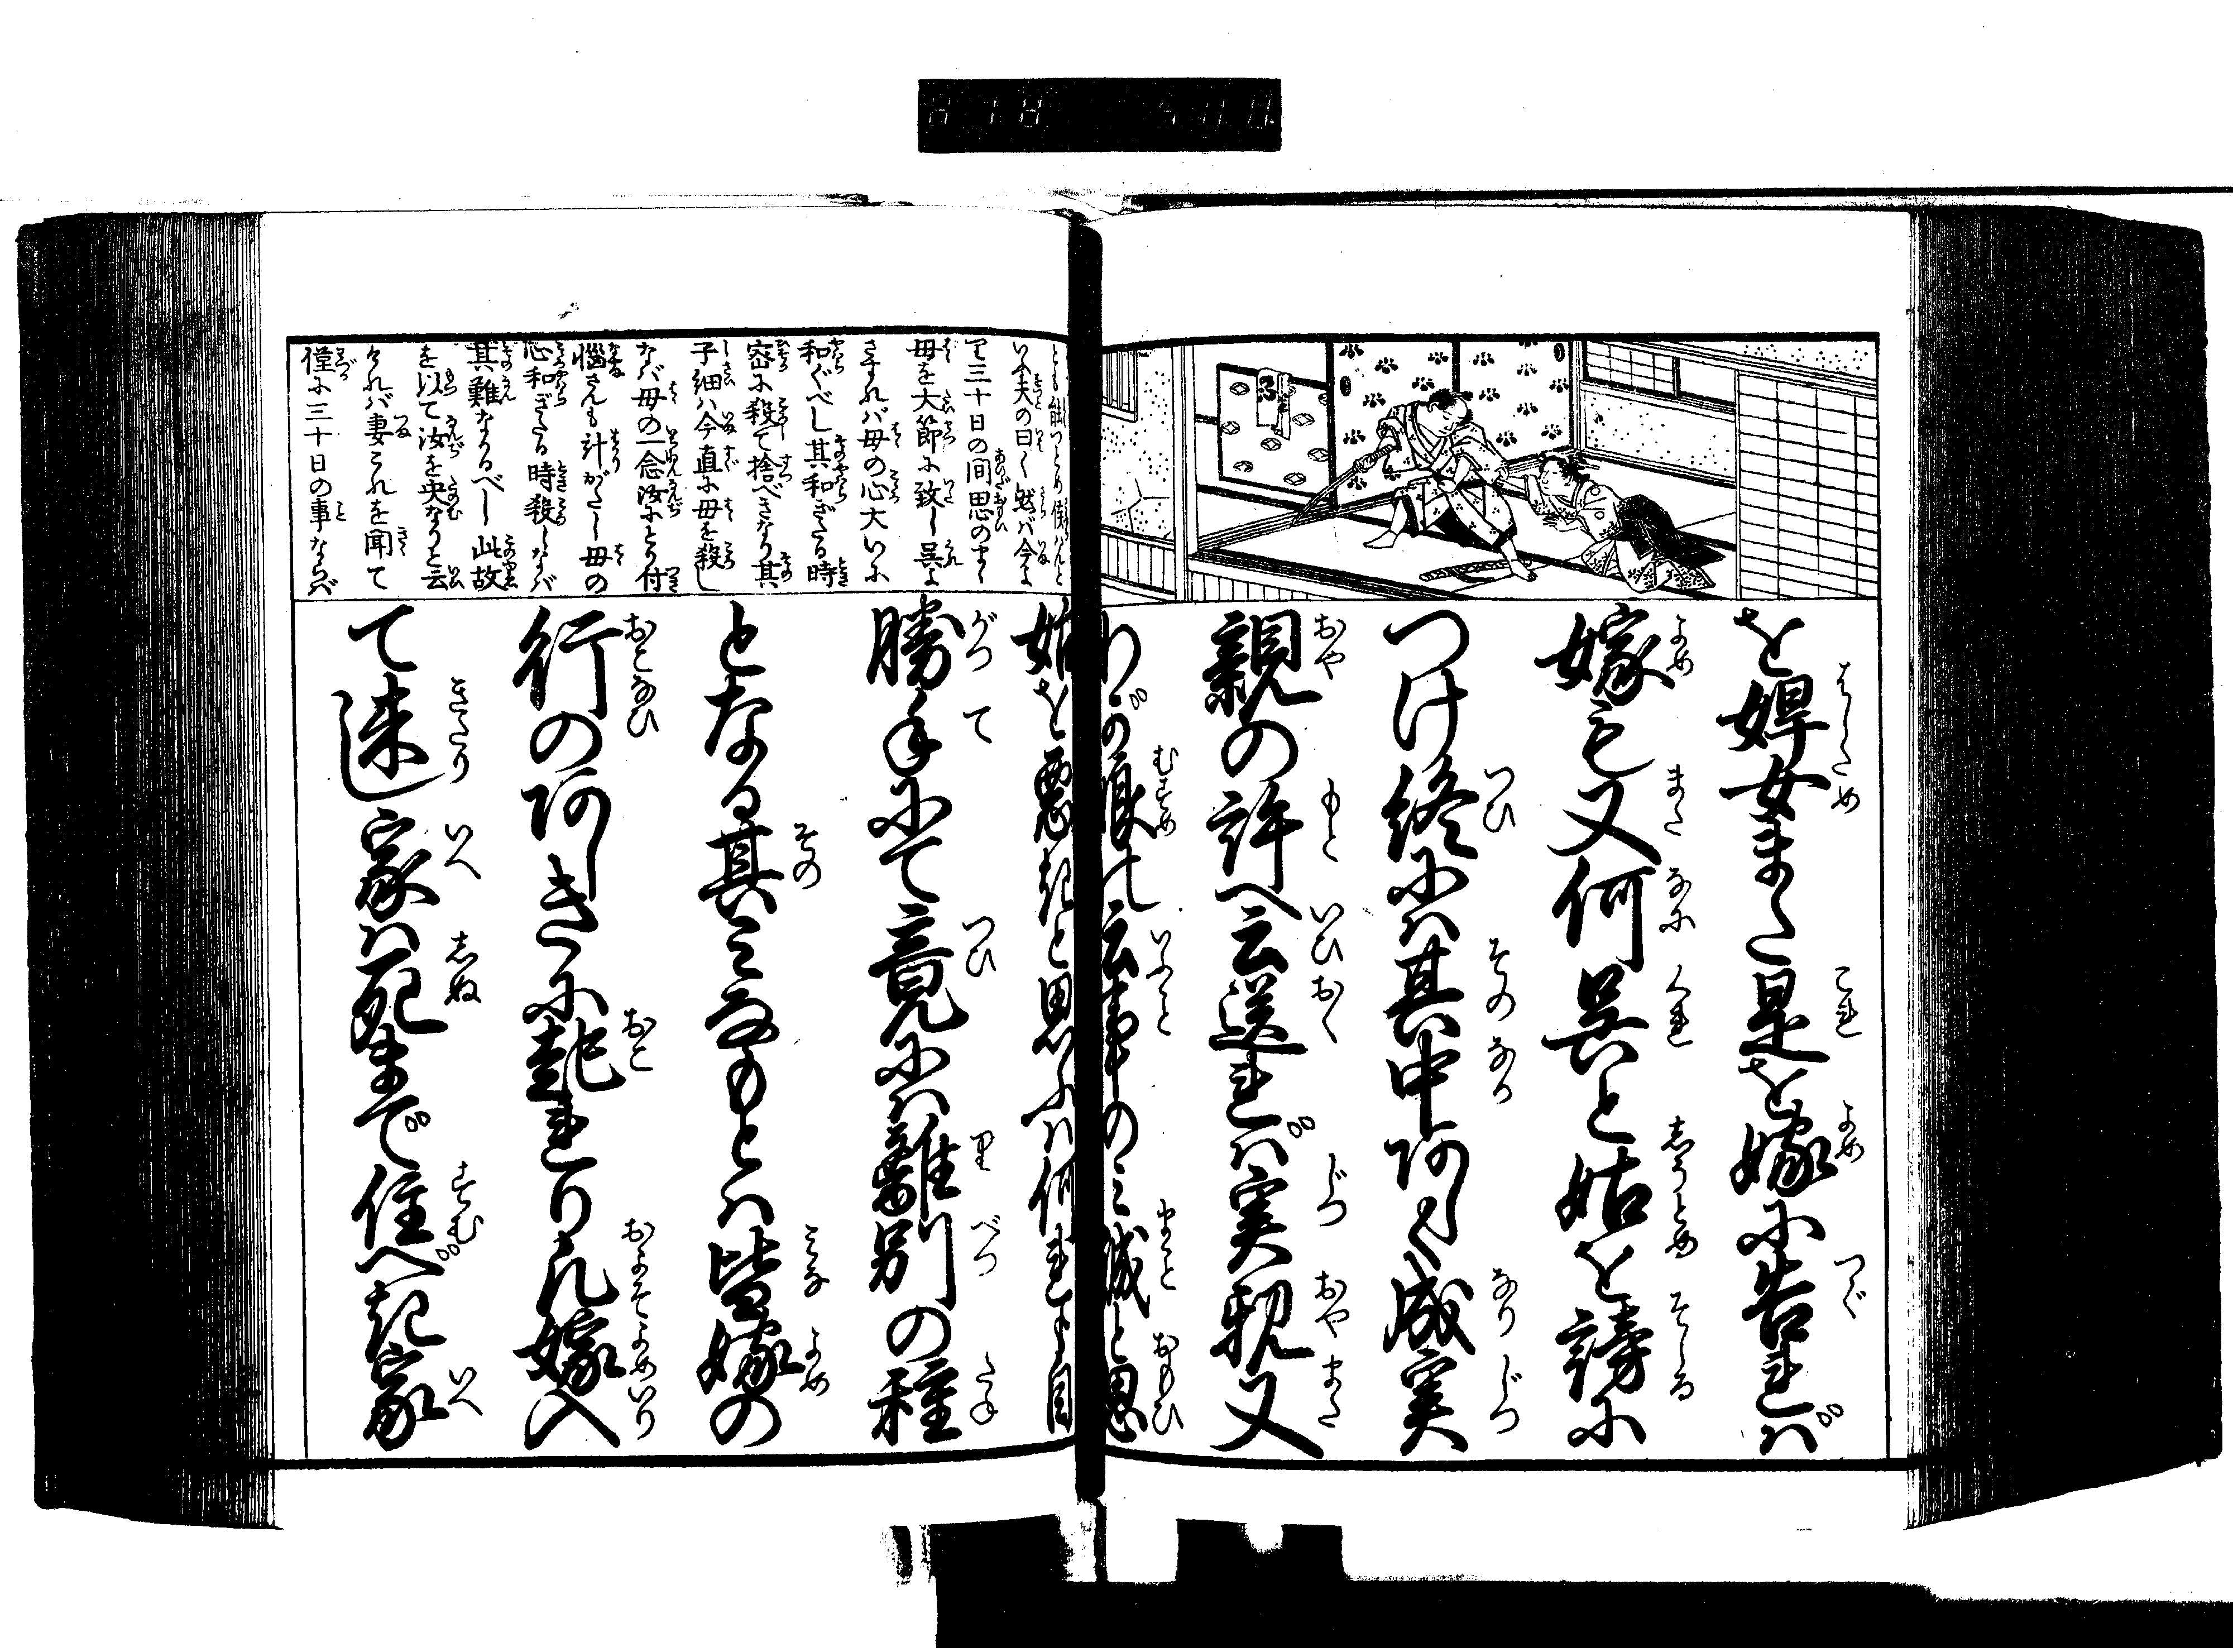 を婢女また是を嫁に告れバ
嫁も又何呉と姑を謗に
つけ終にハ其中あしく成実
親の許へ云送れバ実親又
わが娘の云事のミ誠と思ひ
姑を悪きと思ふハ何れも自
勝手にて竟にハ離別の種
となる其ミなもとハ皆嫁の
行のあしきに起れり凡嫁入
て来り家ハ死まで住べき家
いふ夫の曰く然バ今より
三十日の間思のまゝ
母を大節に致し呉よ
さすれバ母の心大いに
和ぐべし其和ぎたる時
密に殺て捨べきなり其
子細ハ今直に母を殺し
なバ母の一念汝にとり付
悩さんも計がたし母の
心和ぎたる時殺しなバ
其難なかるべし此故
を以て汝を央なりと云
けれバ妻これを聞て
僅に三十日の事ならバ